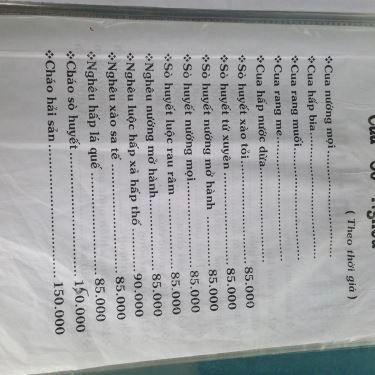 Cua Sò Nghêu
( Theo thời giá )
❖Cua nướng mọi
❖Cua hấp bia
❖Cua rang muối
❖Cua rang me
❖Cua hấp nước dừa
❖Sò huyết xào tỏi 85.000
❖Sò huyết tứ xuyên 85.000
❖Sò huyết nướng mỡ hành 85.000
❖Sò huyết nướng mọi 85.000
❖Sò huyết luộc rau râm 85.000
❖Nghêu nướng mỡ hành 85.000
❖Nghêu luộc hấp xả hấp thố 90.000
❖Nghêu xào sa tế 85.000
❖Nghêu hấp lá quế 85.000
❖Cháo sò huyết 150.000
❖Cháo hải sản 150.000